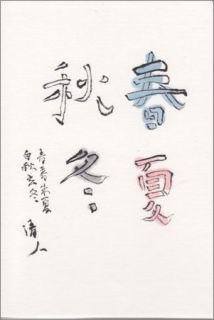 春夏
秋冬
青春朱夏
白秋玄冬
清人